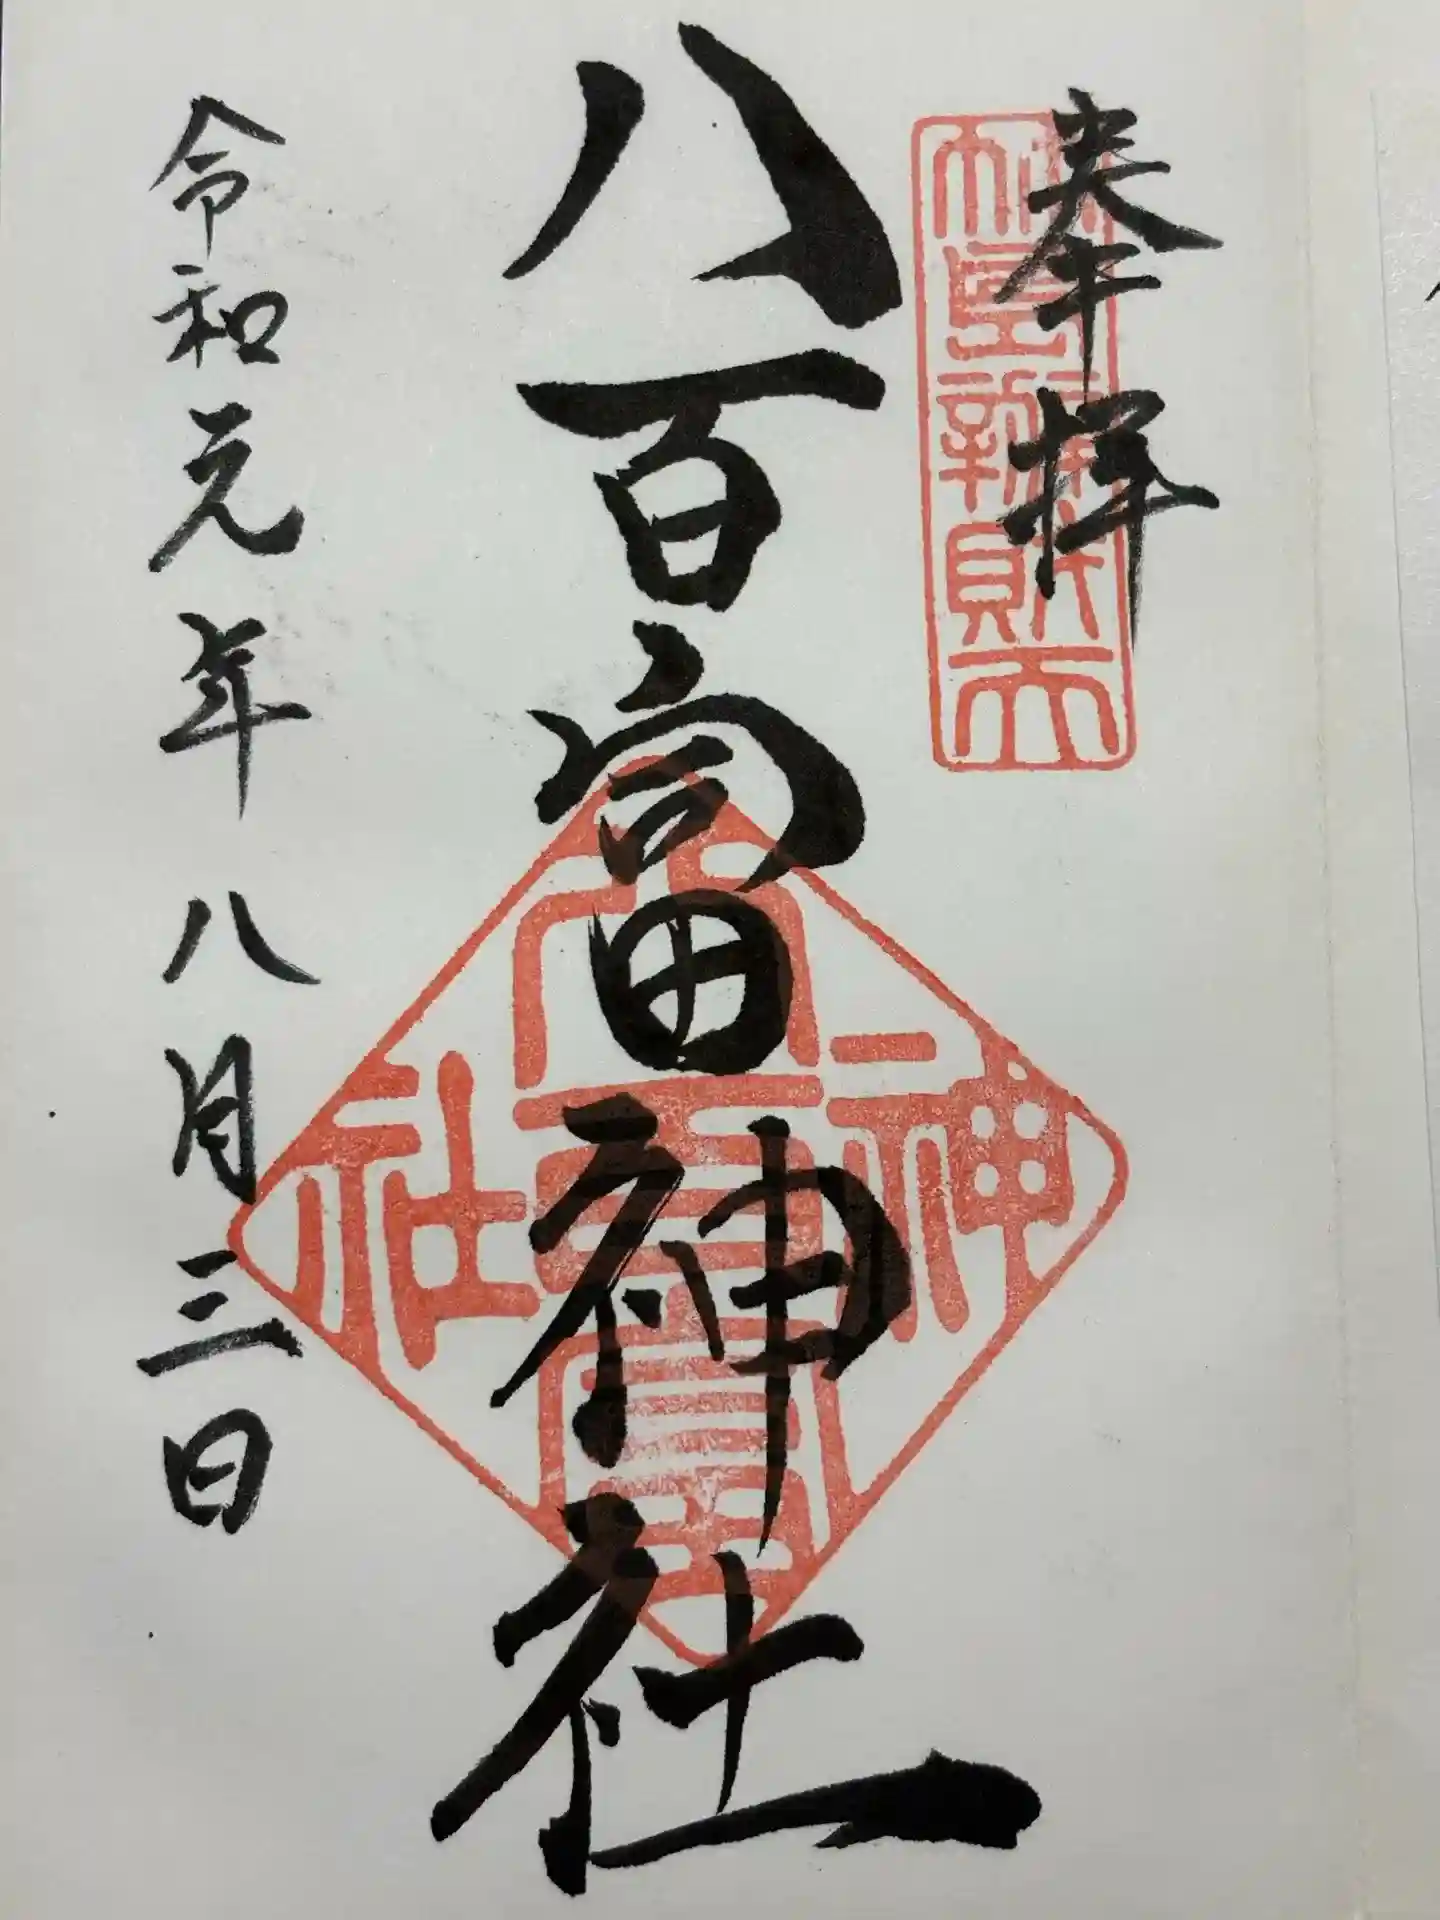 奉拝
竹島辨財天
八百富神社
八百富
神
社
令和元年八月三日